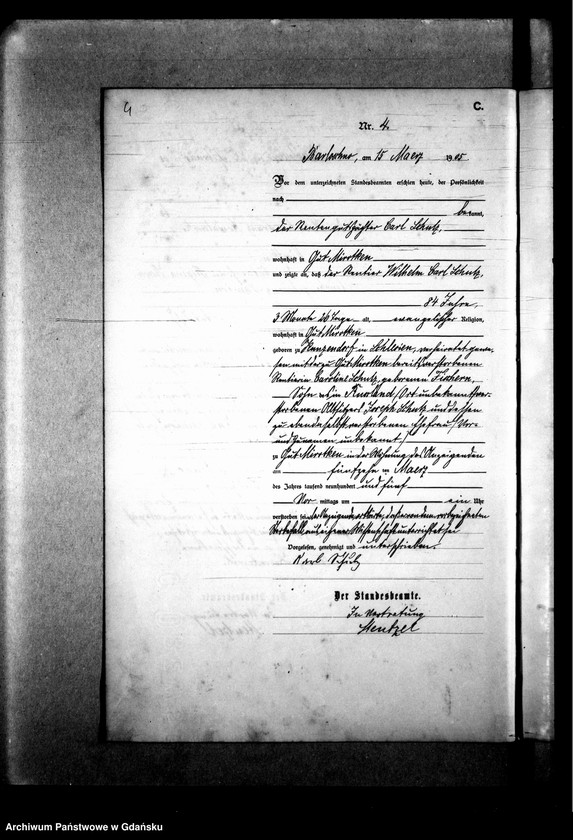 4
C.
Nr. 4.
am 15 Maerz 1905
Vor dem unterzeichneten Standesbeamten erschien heute, der Persönlichkeit
nach
bekannt,
der Rentengutspächter Carl Schulz,
wohnhaft in Gut Mirotken
und zeigte an, daß der Rentier Wilhelm Carl Schulz,
84 Jahre,
3 Monate 26 Tage alt, evangelischer Religion,
wohnhaft in Gut Mirotken
geboren zu Kunzendorf in Schlesien, verheiratet gewe-
sen mit der zu Gut Mirotken bereits verstorbenen
Rentierin Caroline Schulz, geborenen
Sohn des in Kurland (Ort unbekannt) ver-
storbenen Altsitzers Joseph Schulz und dessen
zu ebendaselbst verstorbenen Ehefrau (Vor-
und Zunamen unbekannt)
zu Gut Mirotken in der Wohnung des Anzeigenden
am fünfzehn ten Maerz
des Jahres tausend neunhundert und fünf
Vor mittags um ein Uhr
verstorben sei. der Anzeigende erklärte, daß er von dem vorbezeichneten
Sterbefalle aus eigener Wissenschaft unterrichtet sei
Vorgelesen, genehmigt und unterschrieben.
Karl Schulz
Der Standesbeamte.
In Vertretung
Stentzel
Archiwum Państwowe w Gdańsku